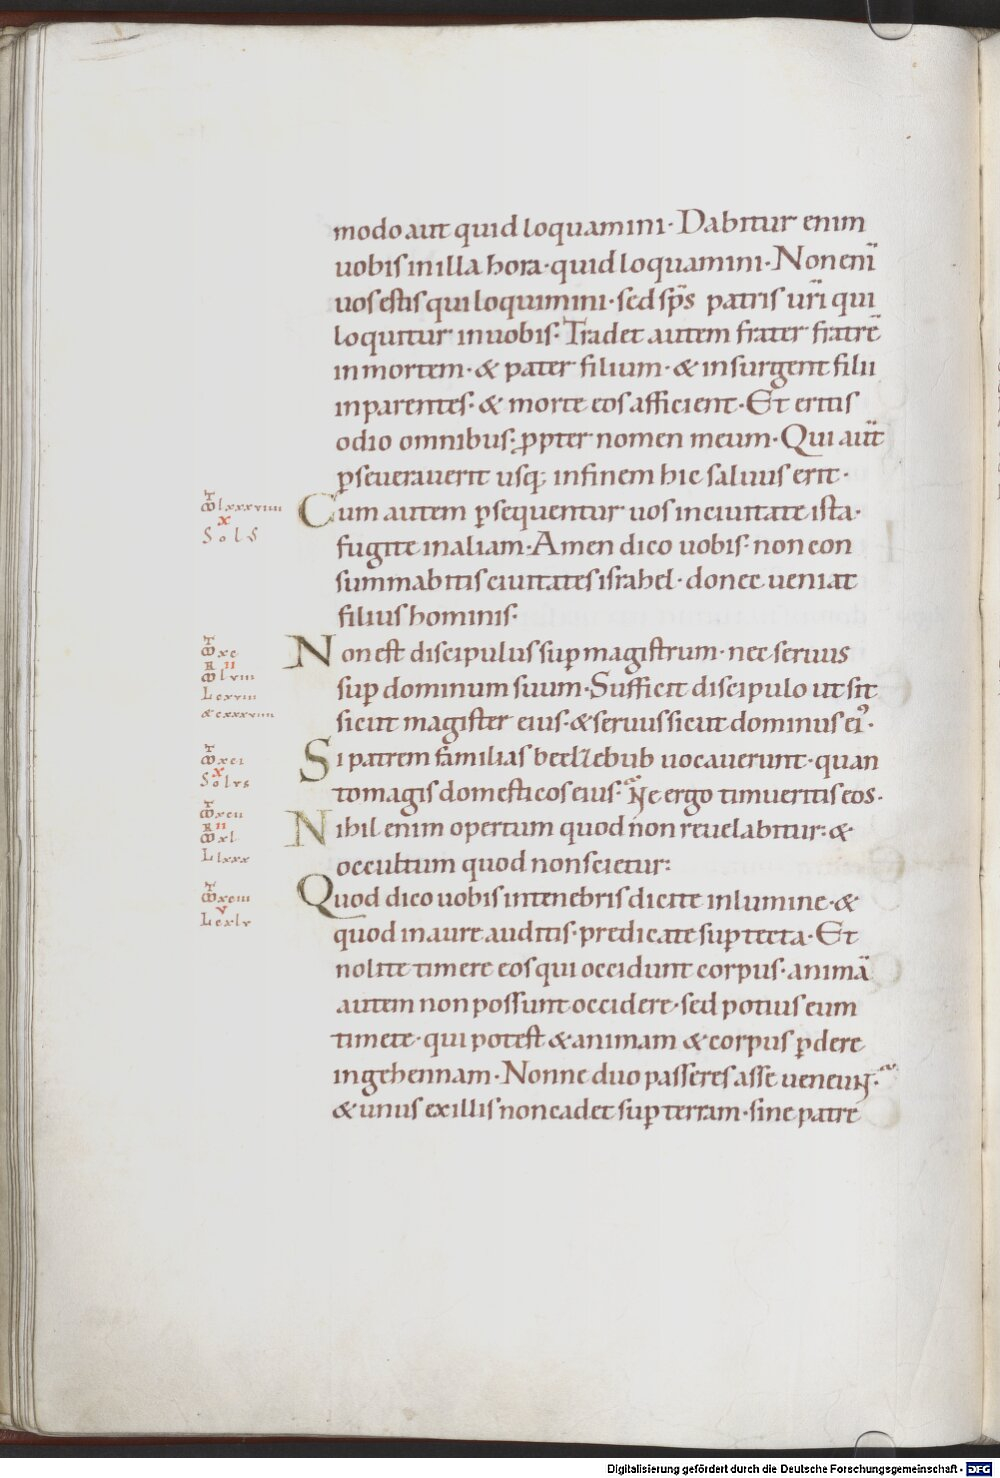 modo aut quid loquamini· Dabitur enim
uobis in illa hora· quid loquamini· Non eni̅
uos estis qui loquimini· sed sp̅s patris ur̅i qui
loquitur in uobis· Tradet autem frater fratre̅
in mortem· & pater filium· & insurgent filii
in parentes· & morte eos afficient· Et eritis
odio omnibus· ꝓpter nomen meum· Qui aut̅
ꝑseuerauerit usq; in finem hic saluus erit·
Cum autem ꝑsequentur uos in ciuitate ista·
fugite in aliam· Amen dico uobis· non con
summabitis ciuitates israhel· donec ueniat
filius hominis·
Non est discipulus suꝑ magistrum· nec seruus
suꝑ dominum suum· Sufficit discipulo ut sit
sicut magister eius· & seruus sicut dominus ei᾽·
Si patrem familias beelzebub uocauerunt· quan
to magis domesticos eius· Ne ergo timueritis eos·
Nihil enim opertum quod non reuelabitur: &
occultum quod non scietur:
Quod dico uobis in tenebris dicite in lumine· &
quod in aure auditis· predicate suꝑ tecta· Et
nolite timere eos qui occidunt corpus· anima̅
autem non possunt occidere· sed potius eum
timete· qui potest & animam & corpus ꝑdere
in gehennam· Nonne duo passeres asse ueneunt·
& unus ex illis non cadet suꝑ terram· sine patre
T
M lxxxviiii
X
Sols
T
M xc
R II
M lviii
L cxviii
& cxxxviiii
T
M xci
X
Solus
T
M xcii
R II
M xl
L lxxx
T
M xciii
V
L cxlv
Digitalisierung gefördert durch die Deutsche Forschungsgemeinschaft - DFG